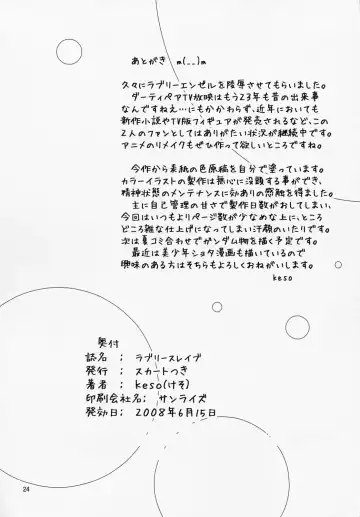 あとがき m(__)m
久々にラブリーエンゼルを陵辱させてもらいました。
ダーティペアTV放映はもう23年も昔の出来事
なんですねえ…にもかかわらず、近年においても
新作小説やTV版フィギュアが発売されるなど、この
2人のファンとしてはありがたい状況が継続中です。
アニメのリメイクもぜひ作って欲しいところですね。
今作から表紙の色原稿を自分で塗っています。
カラーイラストの製作は無心に没頭する事ができ、
精神状態のメンテナンスに効ありの感触を得ました。
主に自己管理の甘さで製作日数がおしてしまい、
今回はいつもよりページ数が少なめな上に、ところ
どころ雑な仕上げになってしまい汗顔のいたりです。
次は夏コミ合わせでガンダム物を描く予定です。
最近は美少年ショタ漫画も描いているので
興味のある方はそちらもよろしくおねがいします。
keso
奥付
誌名 : ラブリースレイブ
発行 : スカートつき
著者 : keso(けそ)
印刷会社名: サンライズ
発効日: 2008年6月15日
24